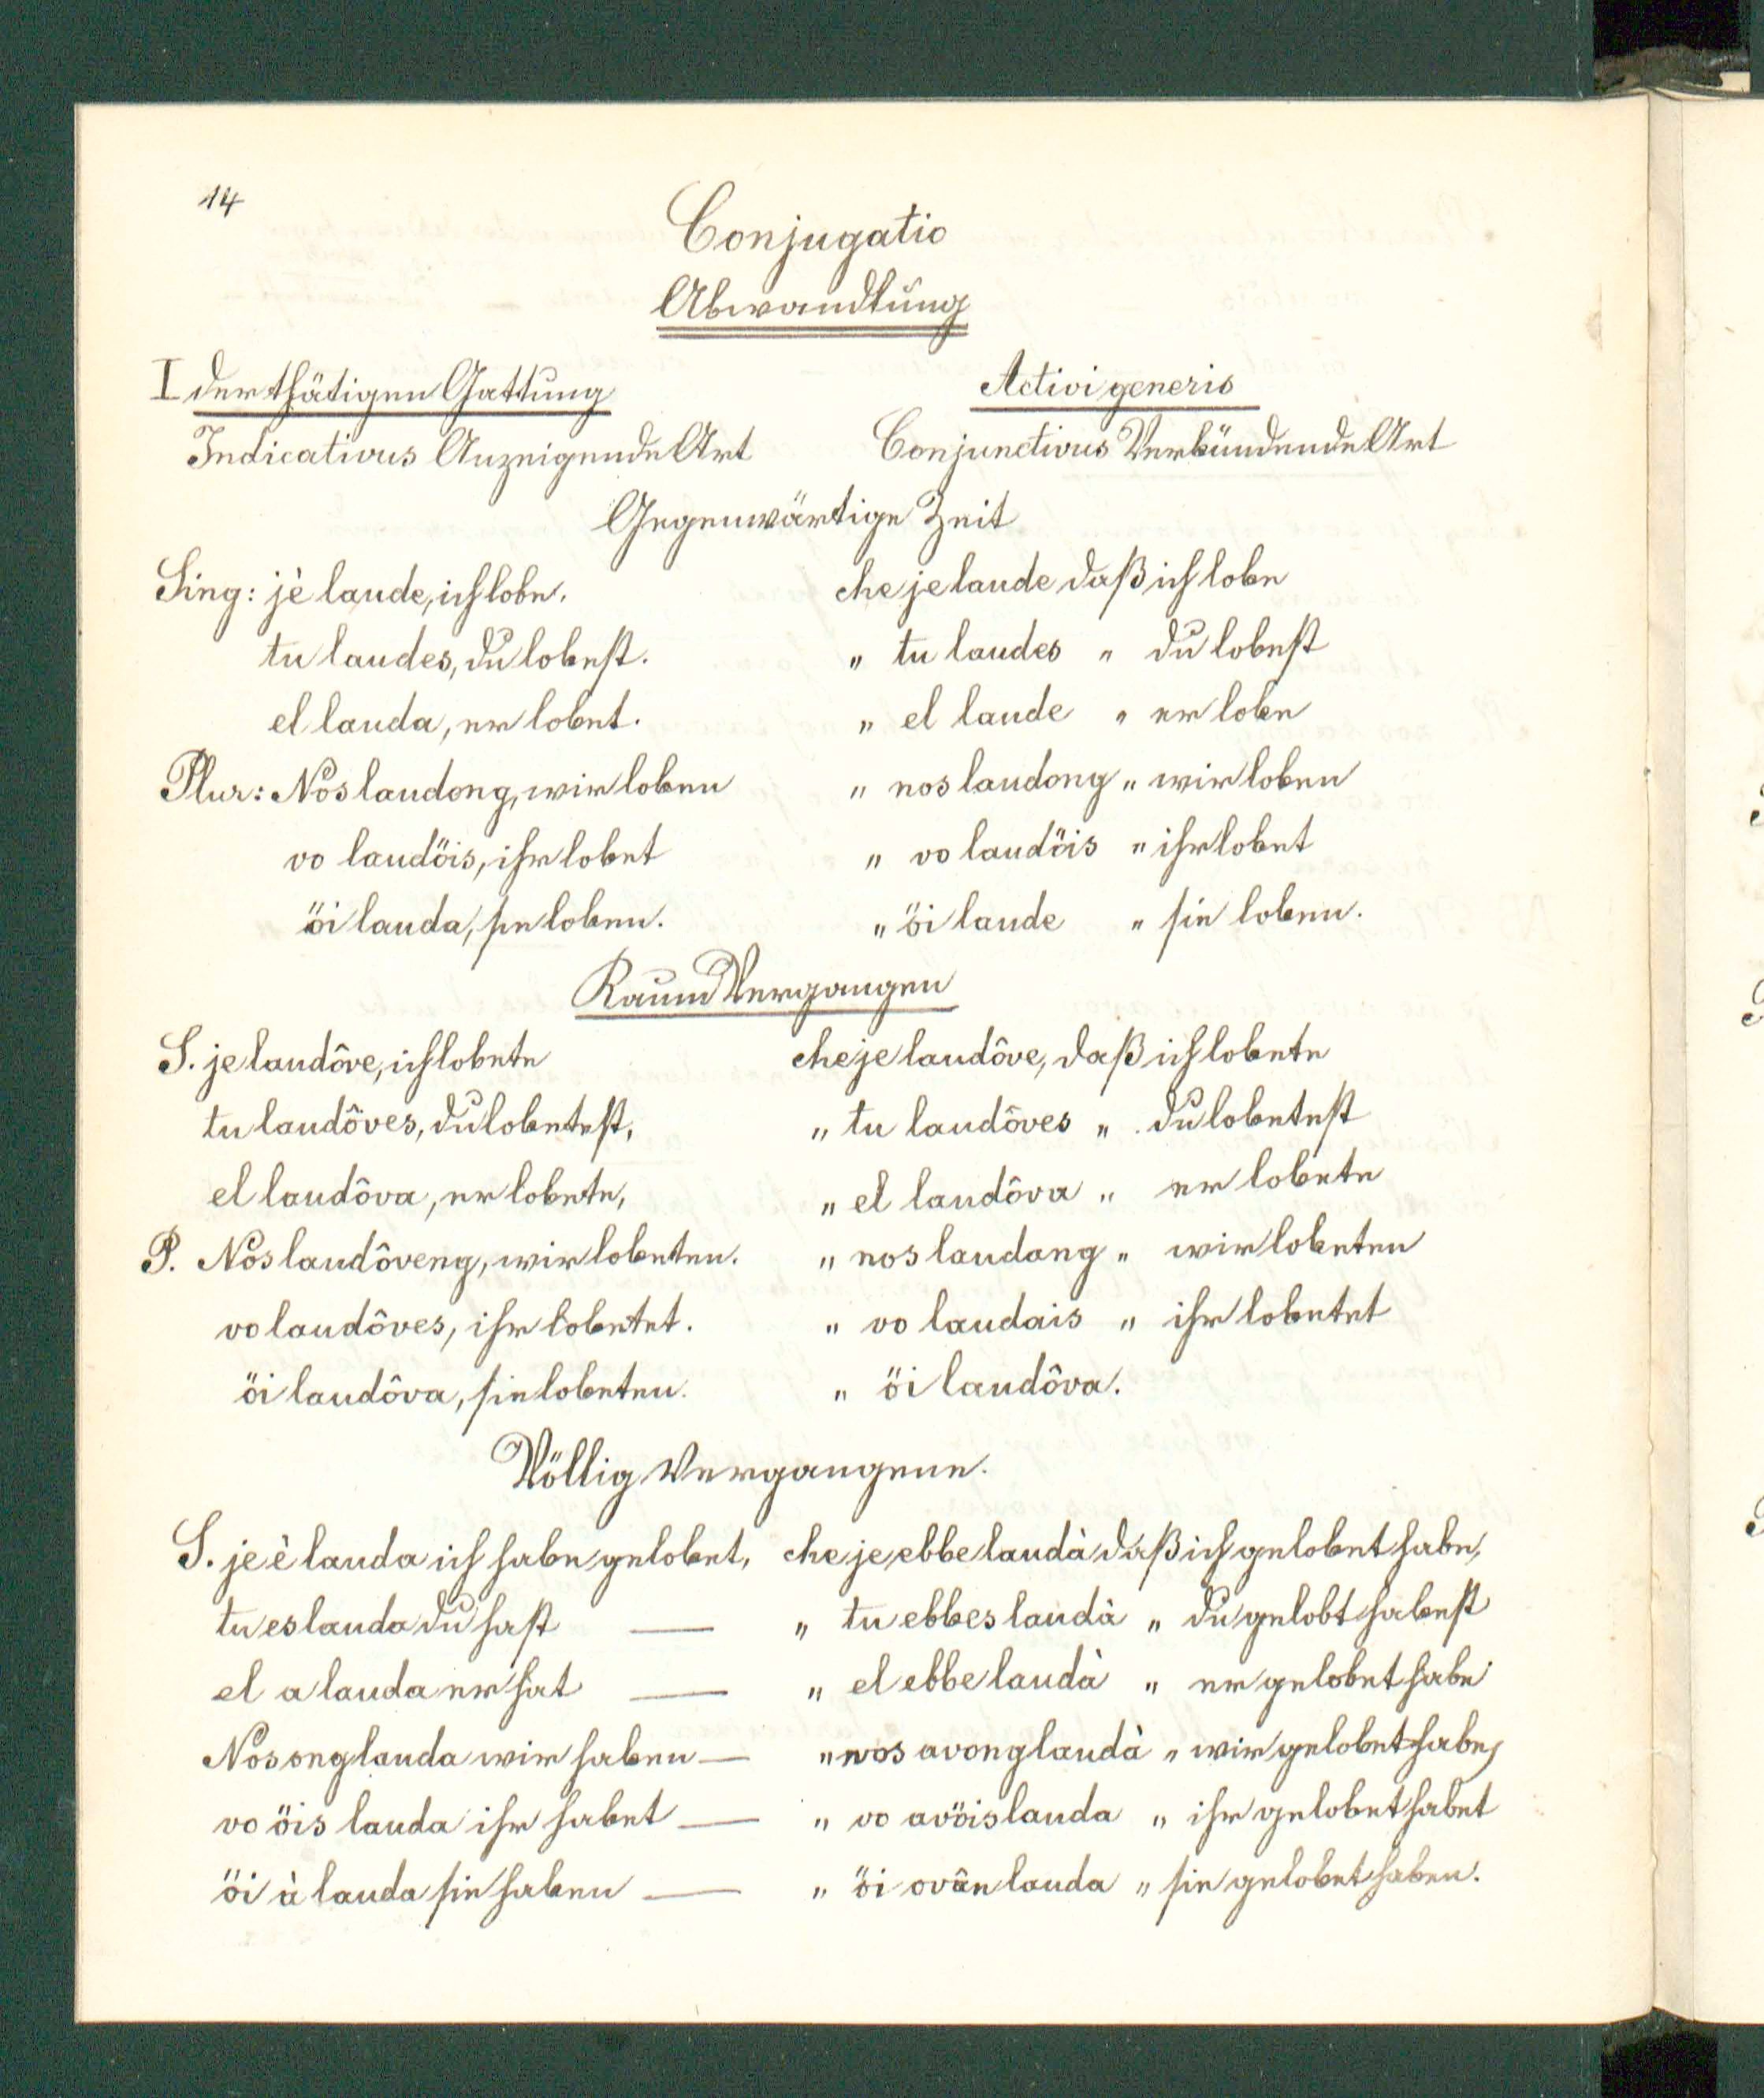 14
Conjugatio
Abwandlung
I der thätigen Gattung Activi generis
Indicativus Anzeigende Art Conjunctivus Verbündende Art
Gegenwärtige Zeit
Sing: jè laude, ich lobe. che je laude daß ich lobe
tu laudes, du lobest. „ tu laudes „ du lobest
el lauda, er lobet. „ el laude „ er lobe
Plur: Nos laudong, wir loben „ nos laudong „ wir loben
vo laudöis, ihr lobet „ vo laudöis „ ihr lobet
öi lauda, sie loben. „ öi laude „ sie loben.
Kaum Vergangen
S. je laudôve, ich lobete che je laudôve, daß ich lobete
tu laudôves, du lobetest, „ tu laudôves „ du lobetest
el laudôva, er lobete, „ el laudôva „ er lobete
P. Nos laudôveng, wir lobeten. „ nos laudang „ wir lobeten
vo laudôves, ihr lobetet. „ vo laudais „ ihr lobetet
öi laudôva, sie lobeten. „ öi laudôva.
Völlig Vergangene.
S. je è lauda ich habe gelobet, che je ebbe laudà daß ich gelobet habe,
tu es lauda du hast — „ tu ebbes laudà „ du gelobt habest
el a lauda er hat — „ el ebbe laudà „ er gelobet habe
Nos ong lauda wir haben — „ nos avong laudà „ wir gelobet habe,
vo öis lauda ihr habet — „ vo avöis lauda „ ihr gelobet habet
öi à lauda sie haben — „ öi ovân lauda „ sie gelobet haben.